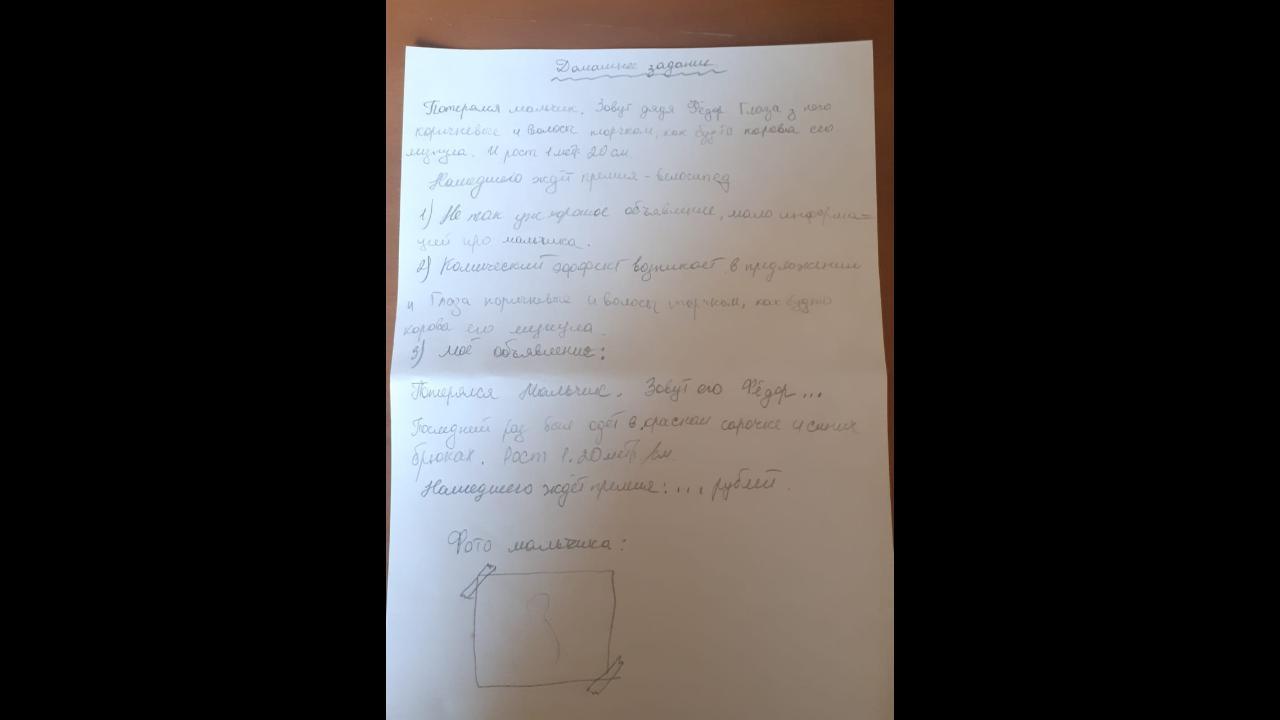 Домашнее задание
Потерялся мальчик. Зовут дядя Фёдор Глаза у него
коричневые и волосы торчком, как будто корова его
лизнула. И рост 1 мет 20 см.
Нашедшего ждёт премия - велосипед
1) Не так уж хорошое объявление, мало информа=
цией про мальчика.
2) Комический эффект возникает в предложении
и Глаза коричневые и волосы торчком, как будто
корова его лизнула.
3) Моё объявление:
Потерялся Мальчик. Зовут его Фёдор...
Последний раз был одет в красной сорочке и синих
брюках. Рост 1.20 мет
Нашедшего ждёт премия: ... рублей.
Фото мальчика: